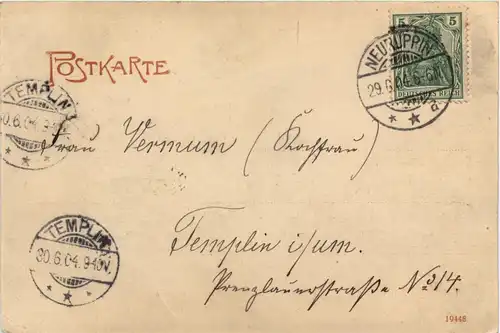 POSTKARTE
5 5
DEUTSCHES REICH
NEURUPPIN
29.6.04.
TEMPLIN
30.6.04.9
Frau Vermum (Kochfrau)
TEMPLIN
30.6.04.9-10V.
Templin i/um.
Prenzlauerstraße No 14.
19448